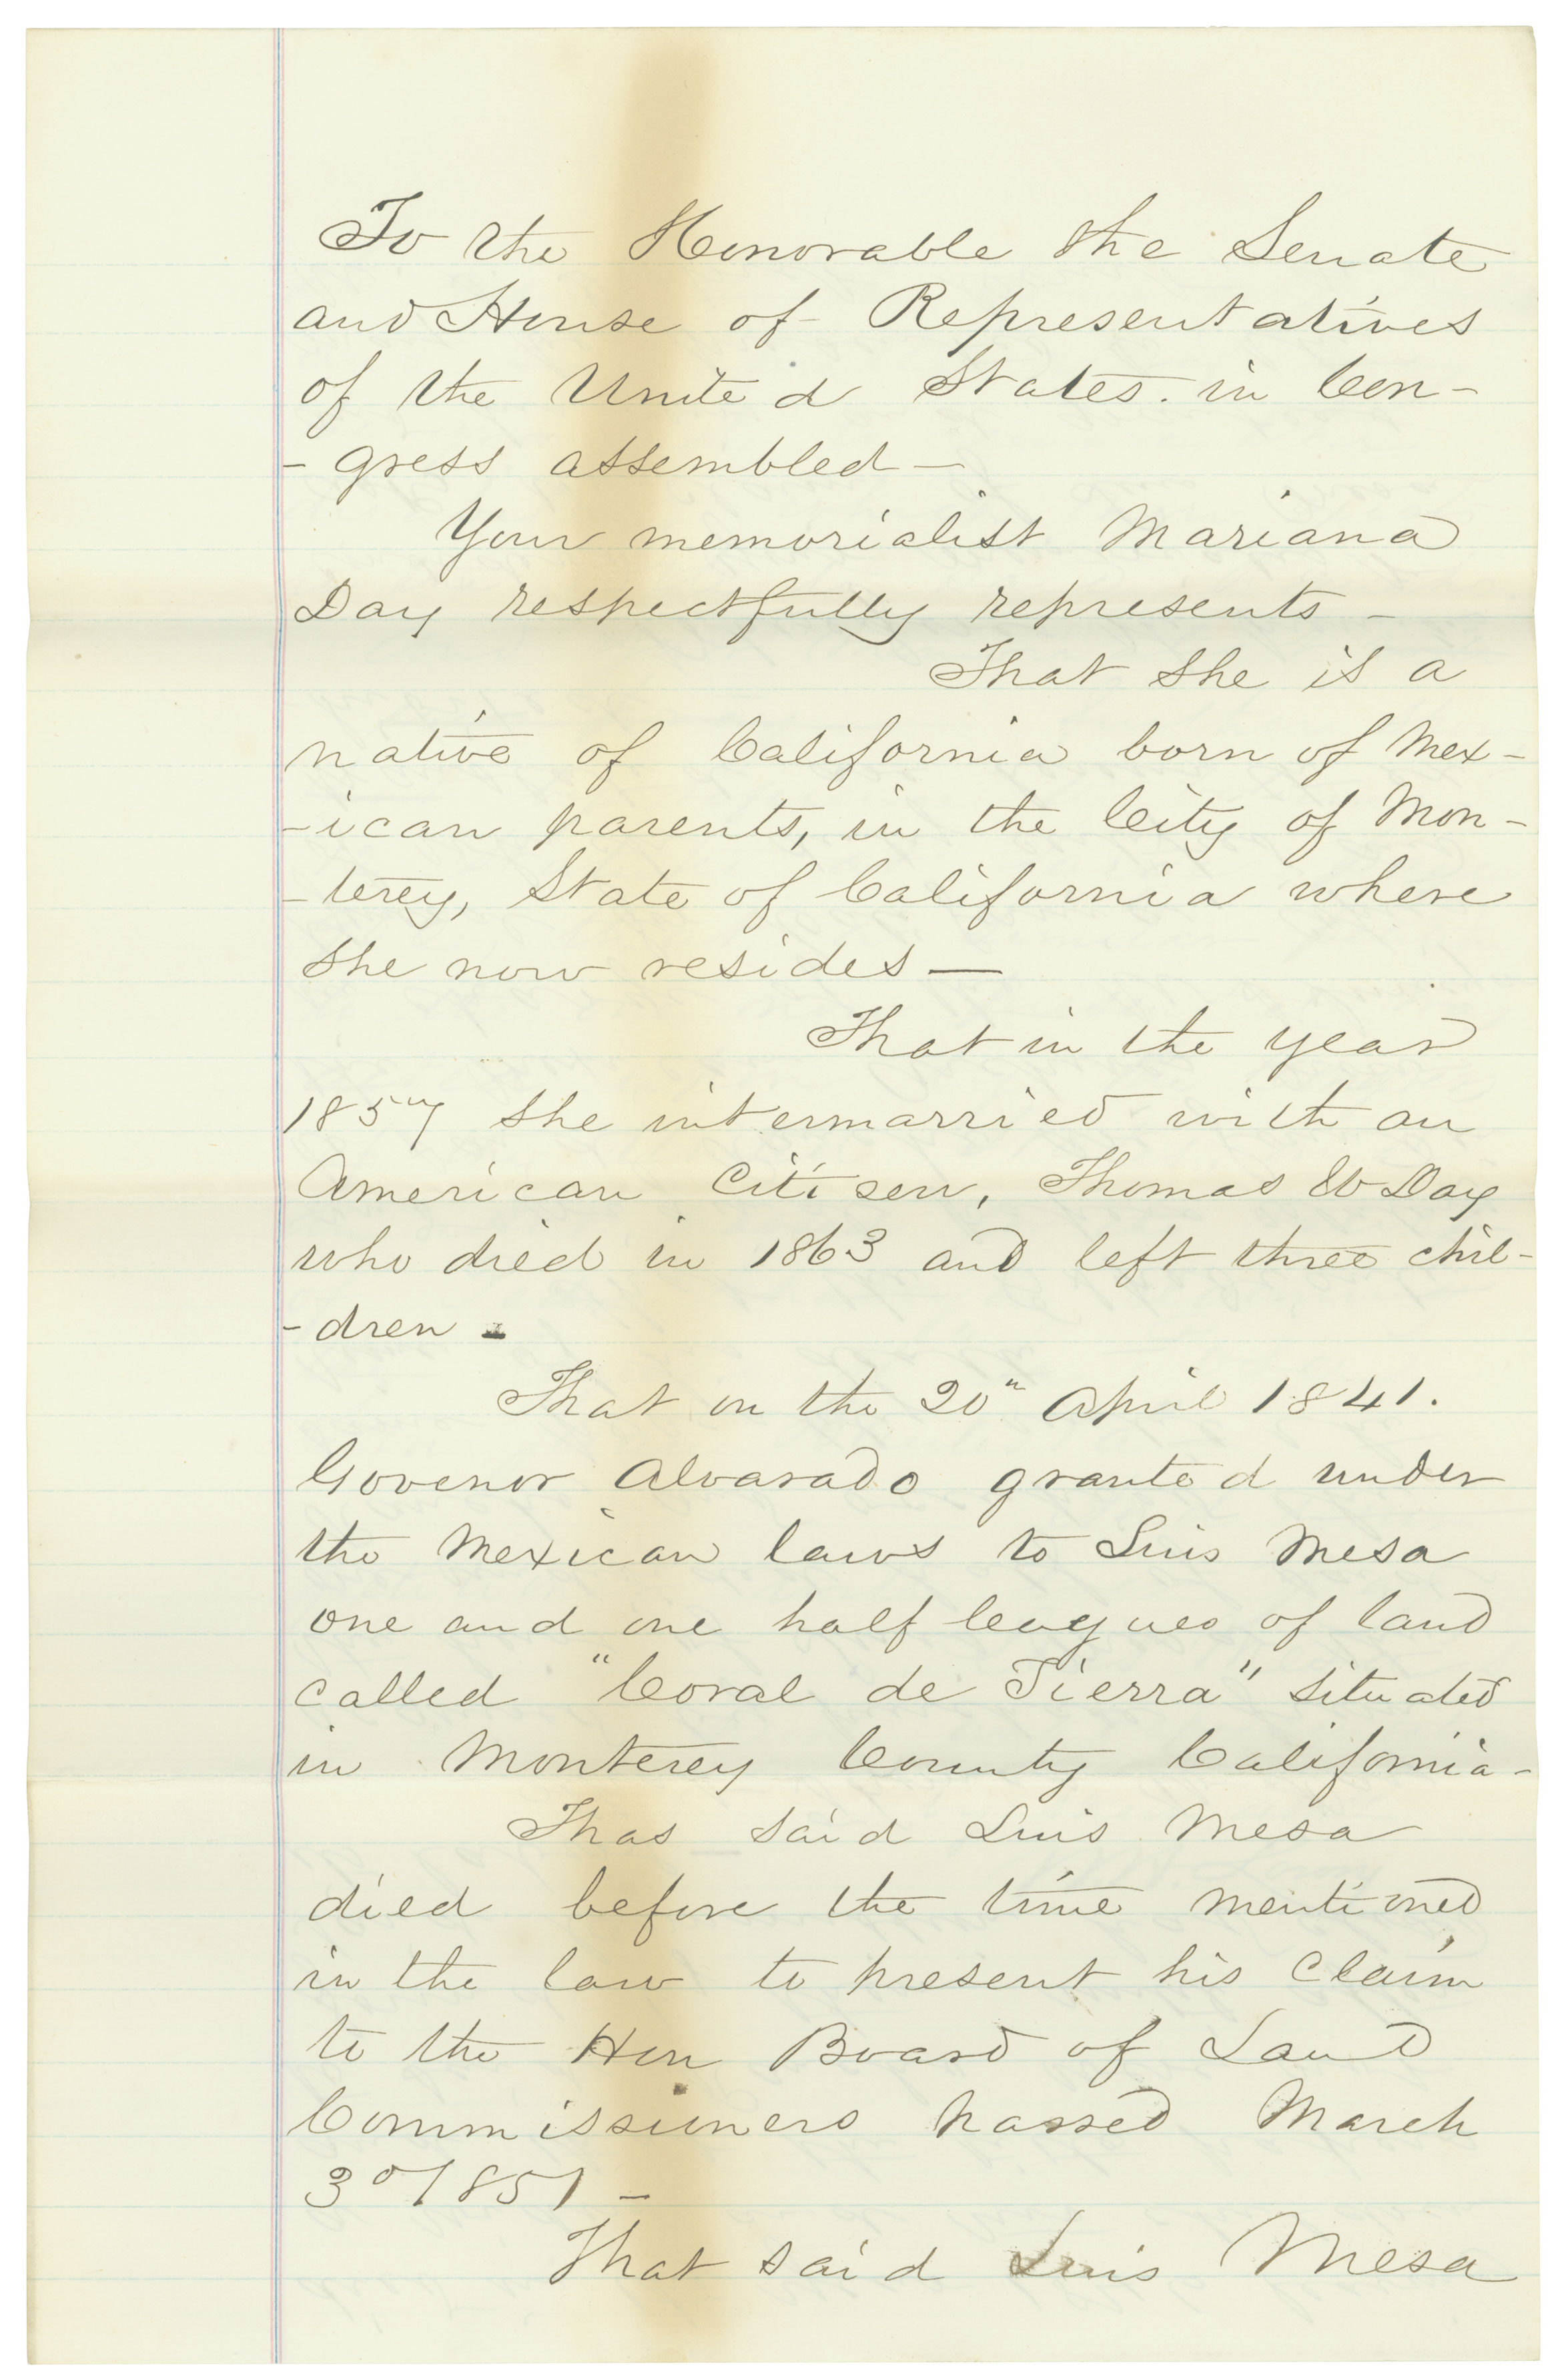 To the Honorable the Senate
and House of Representatives
of the United States. in Con-
- gress assembled -
Your memorialist Mariana
Day respectfully represents -
That she is a
native of California born of Mex-
-ican parents, in the City of Mon-
-terey, State of California where
she now resides —
That in the year
1857 she intermarried with an
American Citisen, Thomas W Day
who died in 1863 and left three chil-
- dren -
That on the 20" April 1841.
Govenor Alvarado granted under
the Mexican laws to Luis Mesa
one and one half leagues of land
called "Coral de Tierra" situated
in Monterey County California -
Thas said Luis Mesa
died before the time mentioned
in the law to present his claim
to the Hon Board of Land
Commissioners passed March
3d 1851 -
That said Luis Mesa